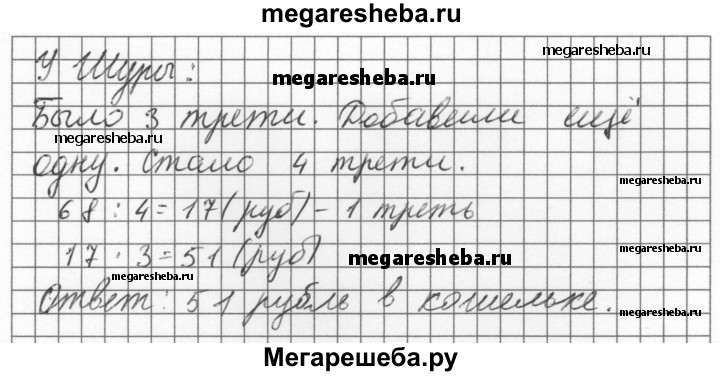 megaresheba.ru
megaresheba.ru
У Шуры:
megaresheba.ru
Было 3 трети. Добавили ещё
megaresheba.ru
одну. Стало 4 трети.
megaresheba.ru
68 : 4 = 17 (руб) - 1 треть
17 · 3 = 51 (руб)
megaresheba.ru
megaresheba.ru
megaresheba.ru
Ответ: 51 рубль в кошельке.
megaresheba.ru
Мегарешеба.ру